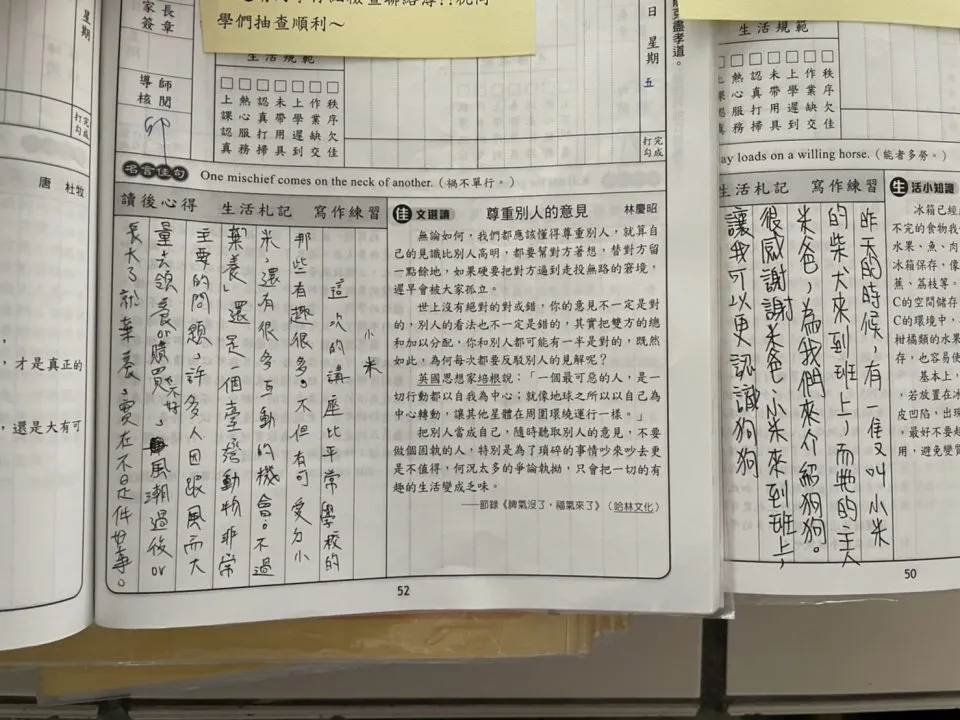 學們抽查順利～
家長簽章
導師核閱
星期
打完勾成
生活規範
上課認真
熱心服務
認真打掃
未帶用具
上學遲到
作業缺交
秩序欠佳
日 星期 五
打完勾成
名言佳句 One mischief comes on the neck of another.（禍不單行。）
讀後心得 生活札記 寫作練習
小米
這次的講座比平常學校的
那些有趣很多。不但有可愛的小
米，還有很多互動的機會。不過
「棄養」還是一個臺灣動物非常
主要的問題，許多人因跟風而大
量去領養or購買，不好 風潮過後or
長大了就棄養，實在不是件好事。
佳文選讀 尊重別人的意見 林慶昭
無論如何，我們都應該懂得尊重別人，就算自
己的見識比別人高明，都要幫對方著想，替對方留
一點餘地，如果硬要把對方逼到走投無路的窘境，
遲早會被大家孤立。
世上沒有絕對的對或錯，你的意見不一定是對
的，別人的看法也不一定是錯的，其實把雙方的總
和加以分配，你和別人都可能有一半是對的，既然
如此，為何每次都要反駁別人的見解呢？
英國思想家培根說：「一個最可惡的人，是一
切行動都以自我為中心；就像地球之所以以自己為
中心轉動，讓其他星體在周圍環繞運行一樣。」
把別人當成自己，隨時聽取別人的意見，不要
做個固執的人，特別是為了瑣碎的事情吵來吵去更
是不值得，何況太多的爭論執拗，只會把一切的有
趣的生活變成乏味。
——節錄《脾氣沒了，福氣來了》（哈林文化）
52
唐 杜牧
，才是真正的
，還是大有可
盡孝道。
生活規範
熱心服務
認真打掃
未帶用具
上學遲到
作業缺交
秩序欠佳
ay loads on a willing horse.（能者多勞。）
生活札記 寫作練習
昨天的時候，有一隻叫小米
的柴犬來到班上，而牠的主人
米爸，為我們來介紹狗狗。
很感謝謝米爸、小米來到班上，
讓我可以更認識狗狗
生活小知識
冰箱已經
不完的食物我
水果、魚、肉
冰箱保存，像
蕉、荔枝等。
C的空間儲存
C的環境中，
柑橘類的水果
存，也容易使
基本上，
，若放置在冰
皮凹陷，出現
，最好不要超
用，避免變質
50